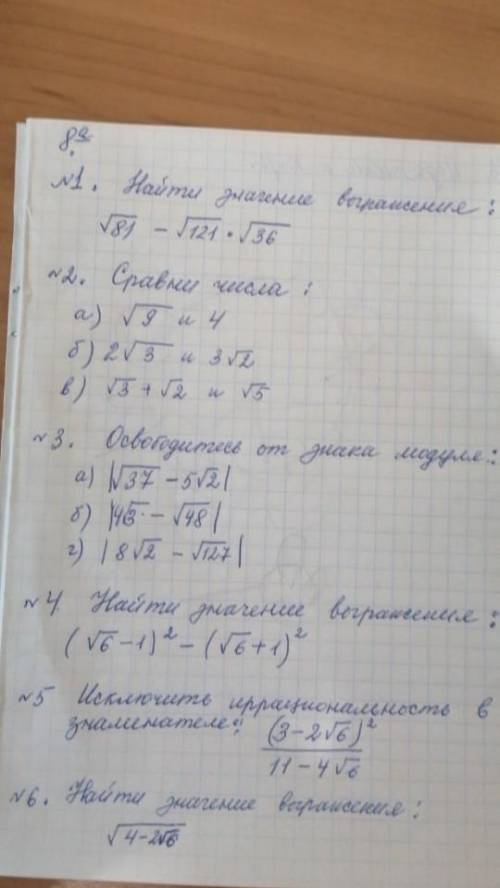 8а
№1. Найти значение выражения:
√81 − √121 • √36
№2. Сравни числа:
а) √9 и 4
б) 2√3 и 3√2
в) √3 + √2 и √5
№3. Освободитесь от знака модуля:
а) |√37 − 5√2|
б) |4√3 − √48|
г) |8√2 − √127|
№4 Найти значение выражения:
(√6 − 1)² − (√6 + 1)²
№5 Исключить иррациональность в
знаменателе: (3 − 2√6)² / (11 − 4√6)
№6. Найти значение выражения:
√(4 − 2√6)